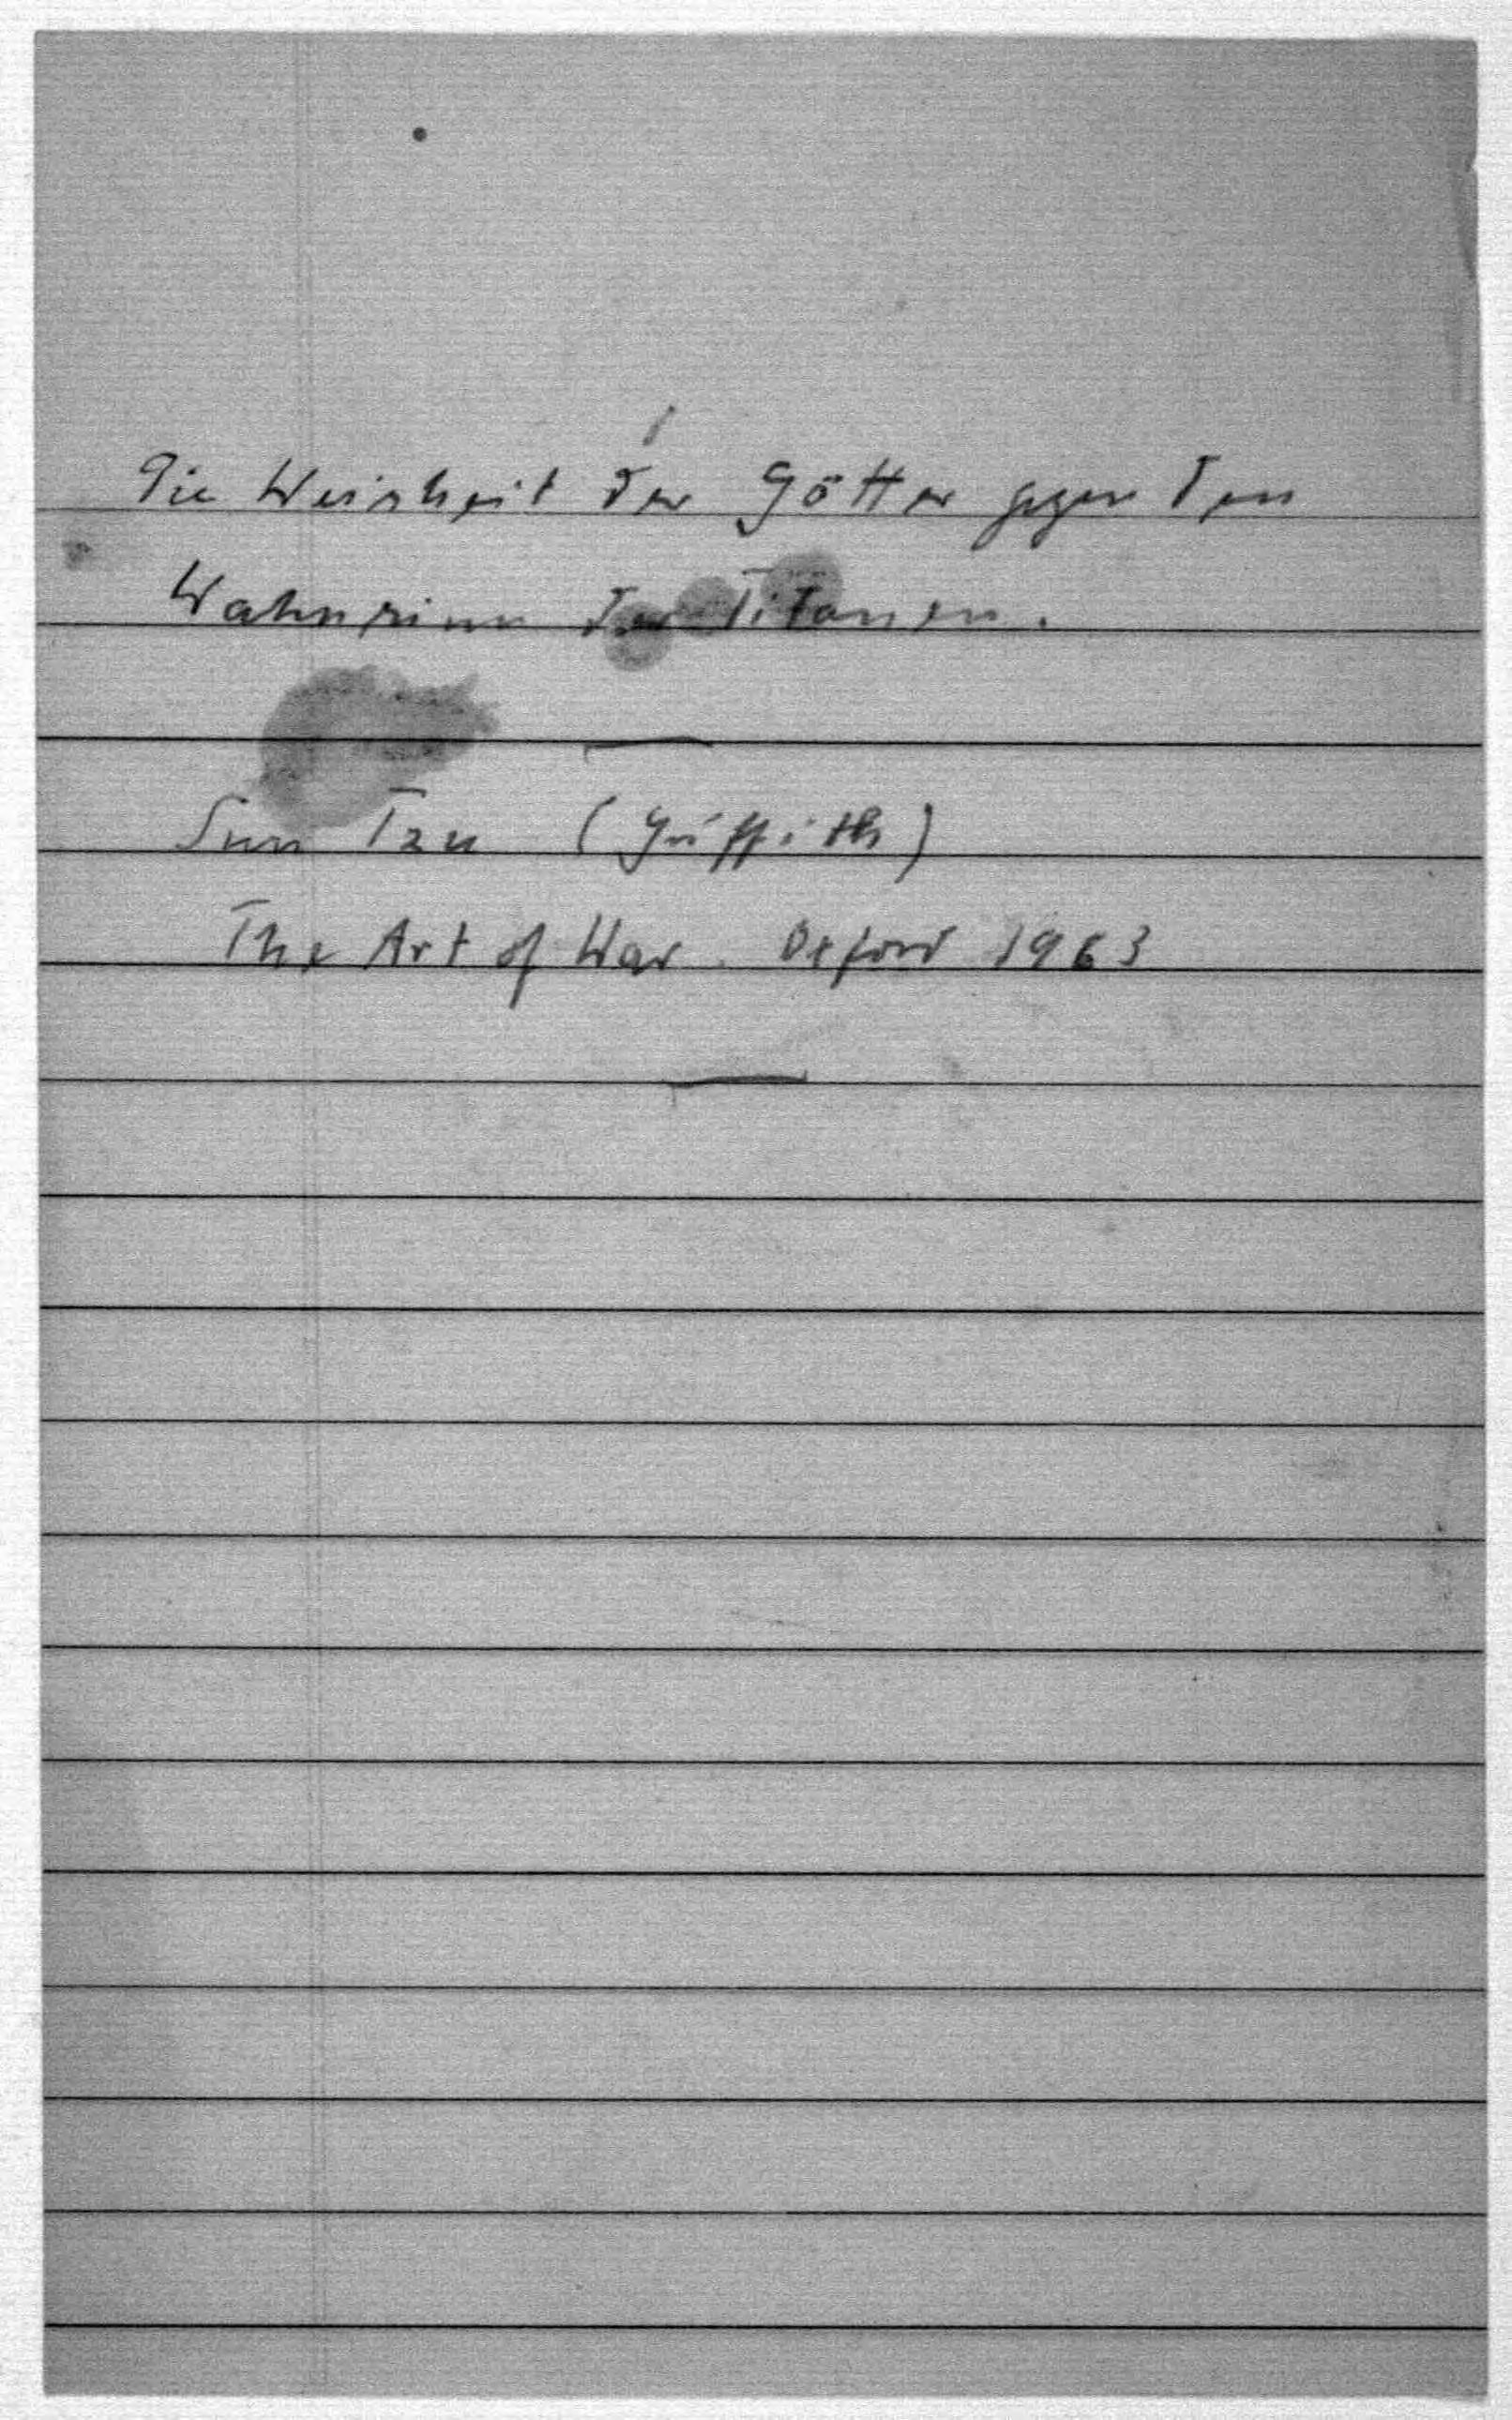 Die Weisheit der Götter gegen den
Wahnsinn der Titanen.
Sun Tzu (Griffith)
The Art of War. Oxford 1963